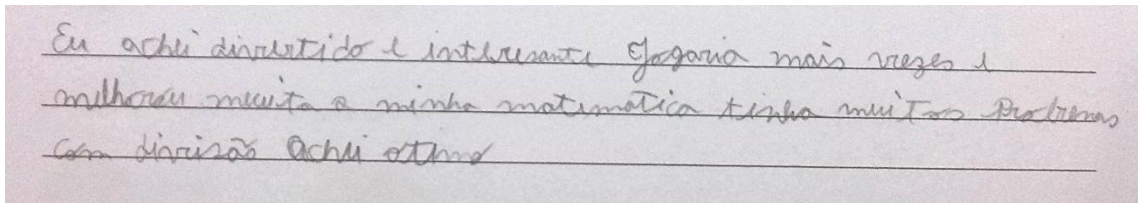 Eu achei divertido e interesante Jogaria mais vezes e
melhorou muita a minha matematica tinha muitos Probremas
com divisão Achei otimo